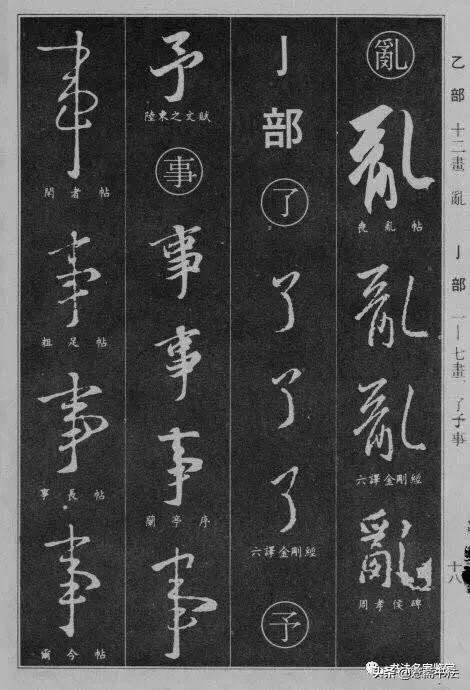 乙部 十二畫 亂 亅部 一—七畫 了予事
十八
亂
亂
喪亂帖
亂
亂
六譯金剛經
亂
周孝侯碑
亅部
了
了
了
了
六譯金剛經
予
予
陸柬之文賦
事
事
事
事
蘭亭序
事
事
闊者帖
事
粗足帖
事
事長帖
事
爾今帖